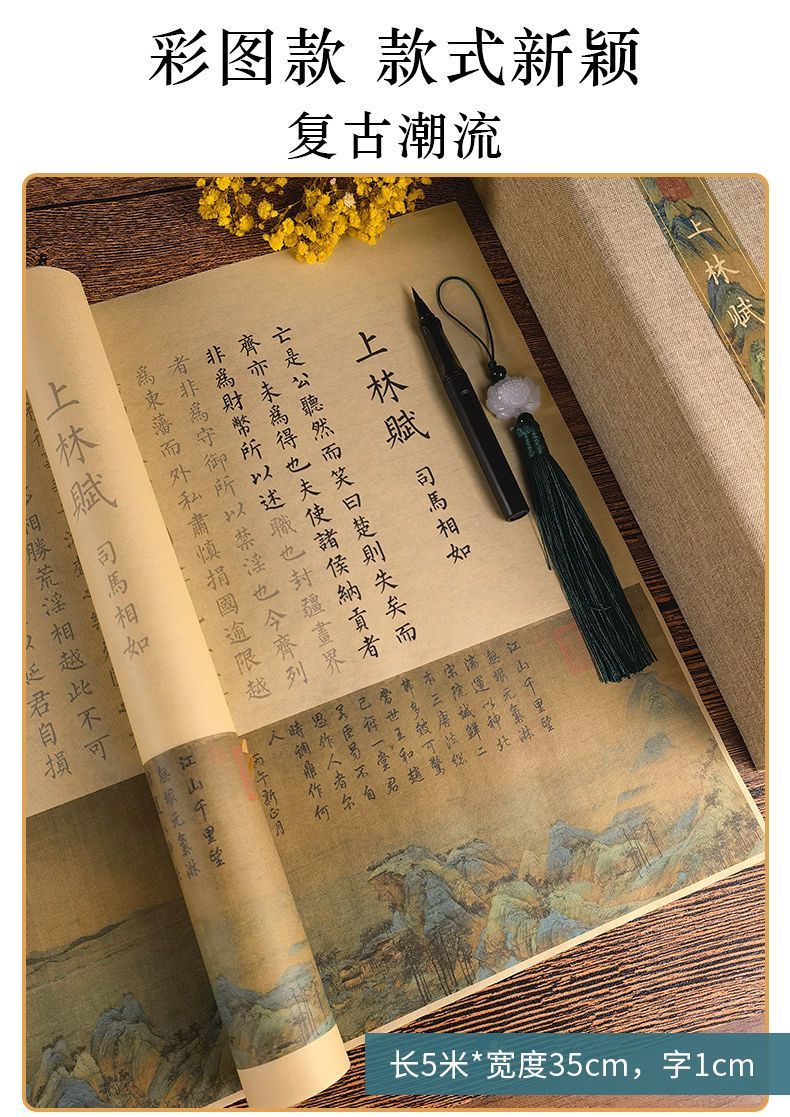 彩图款 款式新颖
复古潮流
上林賦
上林賦 司馬相如
亡是公聽然而笑曰楚則失矣而
齊亦未爲得也夫使諸侯納貢者
非爲財幣所以述職也封疆畫界
者非爲守御所以禁淫也今齊列
爲東藩而外私肅慎捐國逾限越
江山千里望
無垠元氣淋
漓運以神北
宋院誠鮮二
本三唐法總
弗多皴可驚
當世王和趙
已訝一堂君
若臣曷不自
思作人者尔
時調鼎作何
人
丙午新正月
上林賦 司馬相如
江山千里望
無垠元氣淋
相越此不可
勝荒淫
君自損
长5米*宽度35cm，字1cm